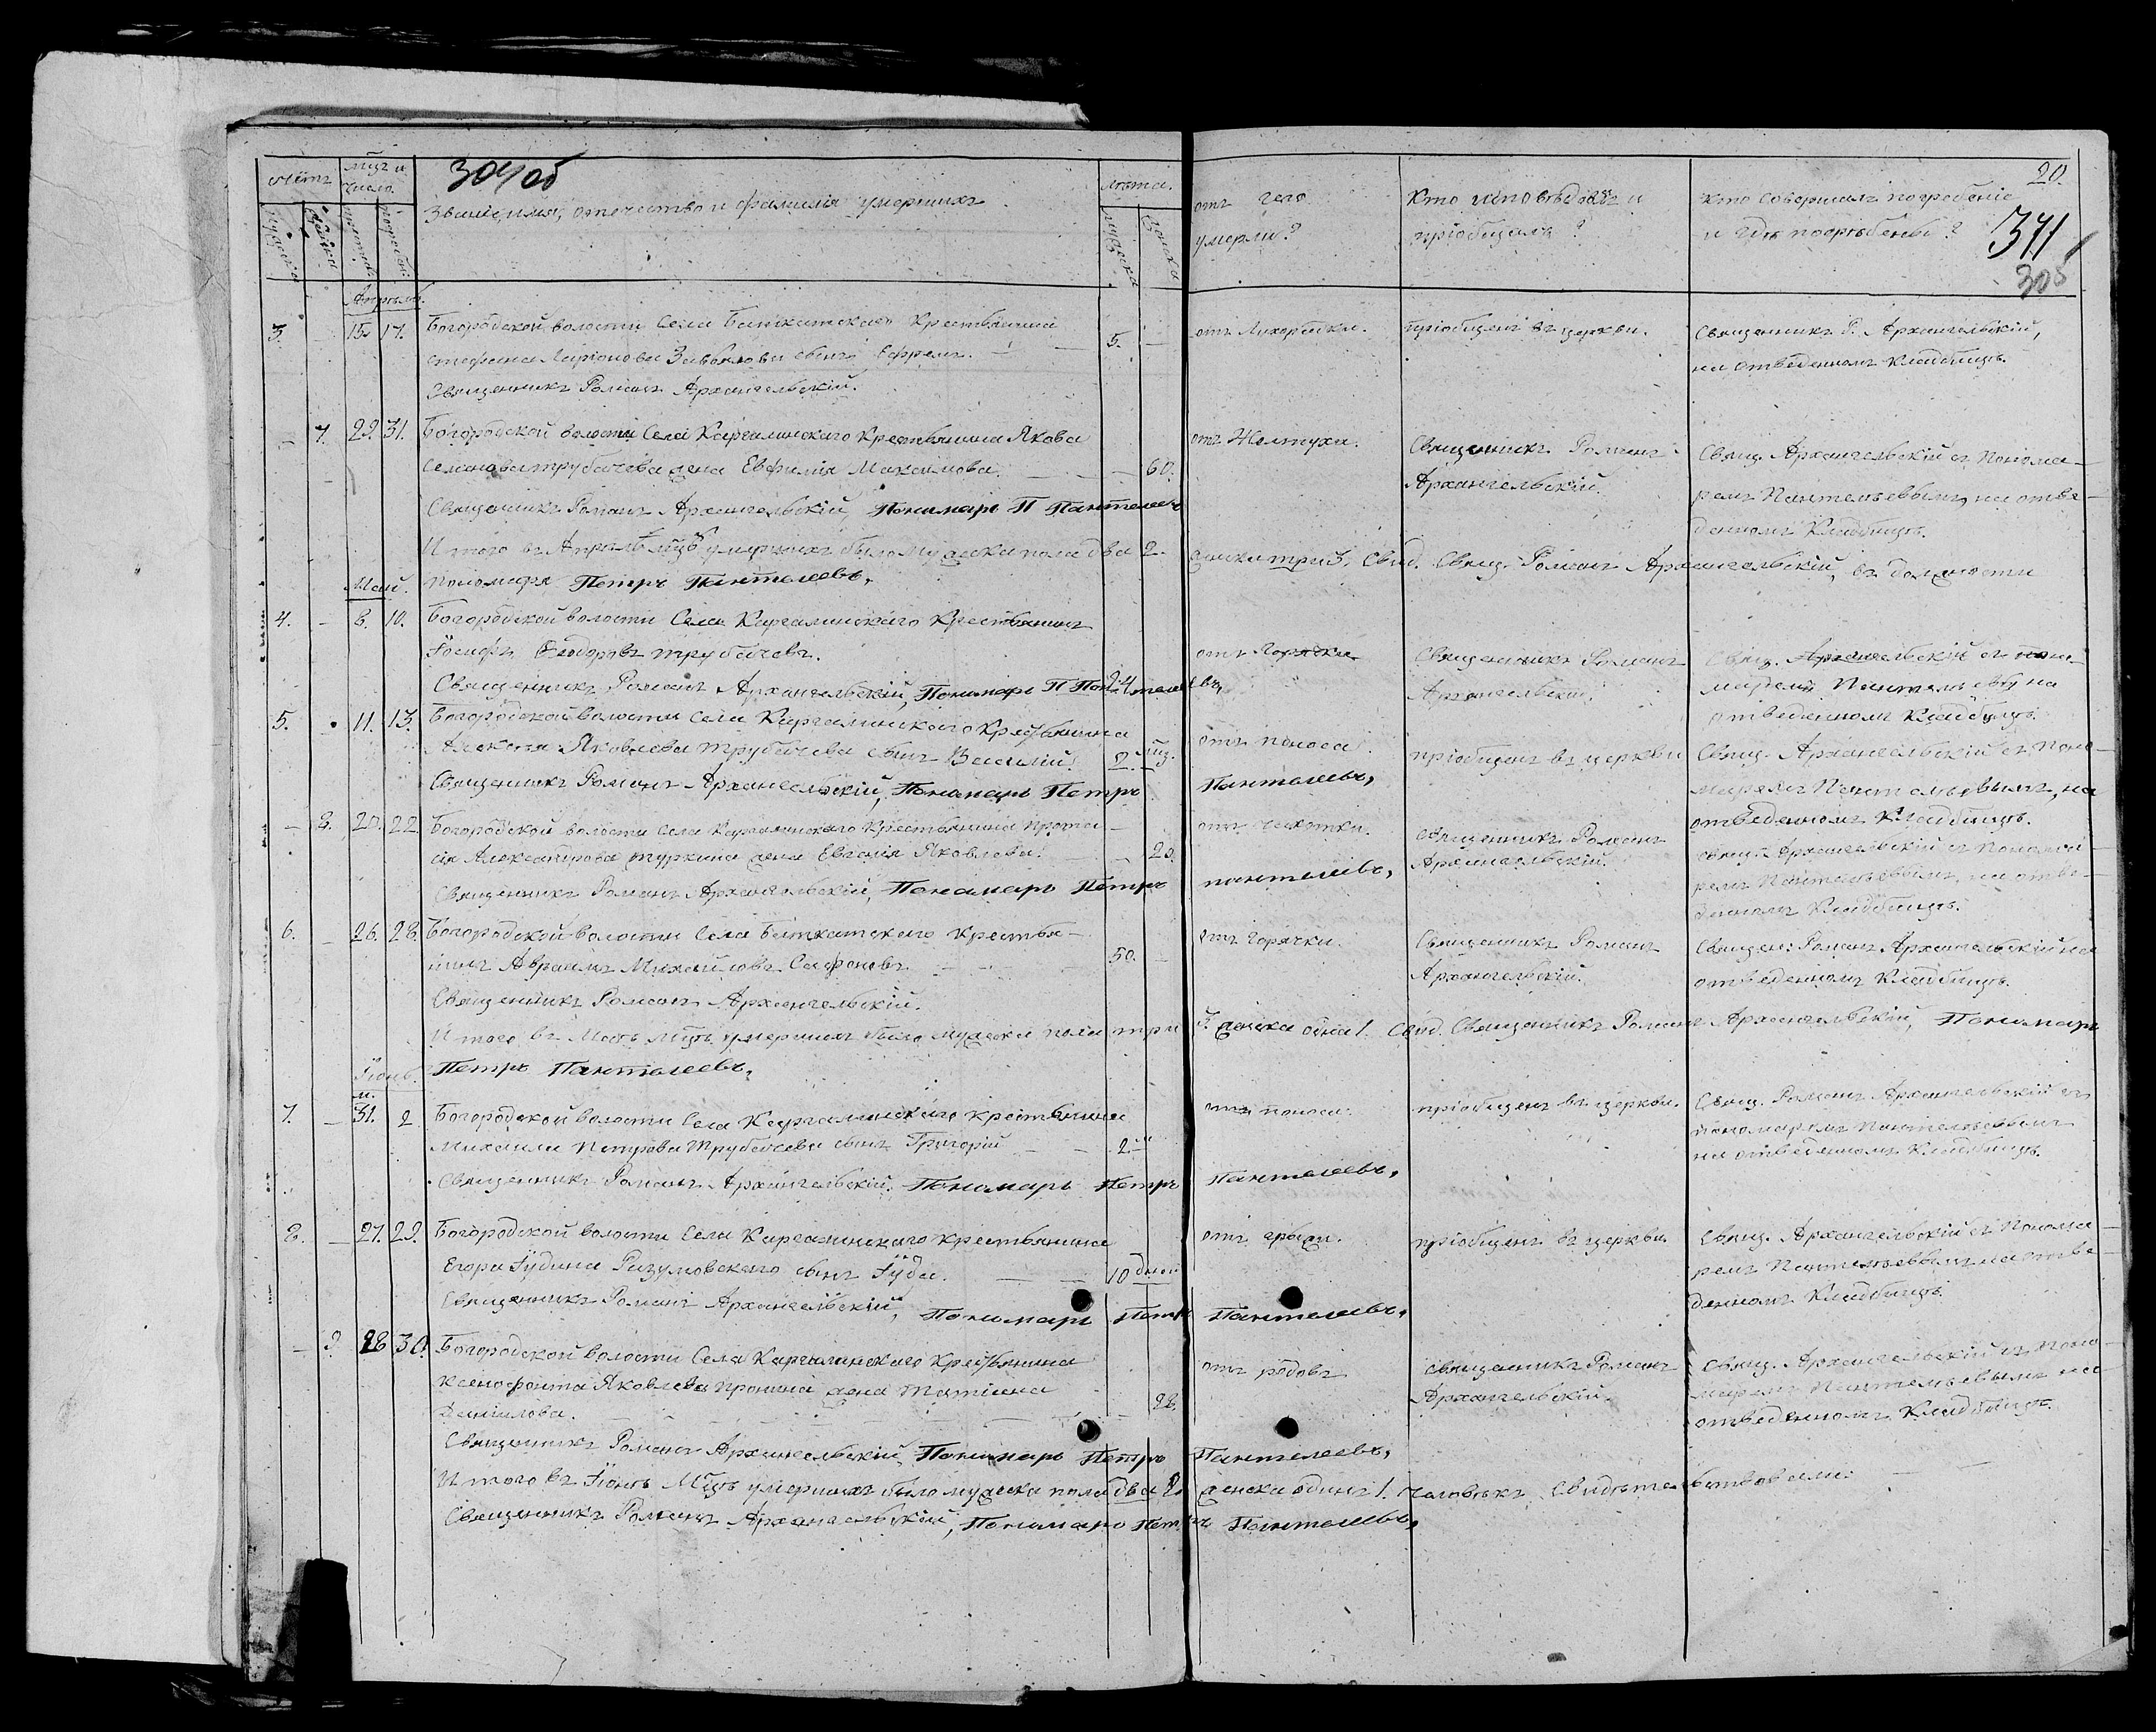 304об
20.
371
305
Счётъ
Мцъ и число.
Званіе, имя, отечество и фамилія умершихъ.
Лѣта.
отъ чего умерли?
Кто исповѣдалъ и пріобщалъ?
Кто совершалъ погребеніе и гдѣ погребены?
Апрѣль.
3. – 15. 17. Богородской волости Села Баткатскаго Крестьянина
Стефана Ларіонова сынъ Ефремъ. 5. –
отъ Лихорадки. пріобщенъ въ церкви. Священникъ Р. Архангельскій,
на отведенномъ Кладбищѣ.
Священникъ Романъ Архангельскій.
– 7. 29. 31. Богородской волости Села Каргалинскаго Крестьянина Якова
Семенова Трубачева жена Евфимія Максимова. – 60.
отъ Желтухи. Священникъ Романъ Архангельскій.
Свящ. Архангельскій съ Понома-
ремъ Пантелѣевымъ, на отве-
денномъ Кладбищѣ.
Священникъ Романъ Архангельскій, Пономарь П Пантелеевъ
Итого въ Апрѣлѣ Мцѣ умершихъ было мужеска пола два 2. женска три 3. Свид. Свящ. Романъ Архангельскій, въ должности
пономаря Петръ Пантелеевъ.
Май.
4. – 8. 10. Богородской волости Села Каргалинскаго Крестьянинъ
Іосифъ Ѳеодоровъ Трубачевъ.
отъ Горячки Священникъ Романъ Архангельскій.
Свящ. Архангельскій съ поно-
маремъ на
отведенномъ Кладбищѣ.
Священникъ Романъ Архангельскій, Пономарь П Пантелеевъ,
5. 11. 13. Богородской волости Села Каргалинскаго Крестьянина
Яковлева Трубачева сынъ Василій. 2. мц.
отъ поноса. пріобщенъ въ церкви Свящ. Архангельскій съ Поно-
маремъ Пантелѣевымъ, на
отведенномъ Кладбищѣ.
Священникъ Романъ Архангельскій, Пономарь Петръ Пантелеевъ,
– 8. 20. 22. Богородской волости Села Каргалинскаго Крестьянина
Александрова жена Евгенія Яковлева. – 20.
отъ чахотки. Священникъ Романъ Архангельскій.
Свящ. Архангельскій съ Понома-
ремъ Пантелѣевымъ, на отве-
денномъ Кладбищѣ.
Священникъ Романъ Архангельскій, Пономарь Петръ Пантелеевъ,
6. – 26. 28. Богородской волости Села Баткатскаго Крестья-
нинъ Авраамъ Михайловъ Сафоновъ 50. –
отъ Горячки. Священникъ Романъ Архангельскій.
Священ: Романъ Архангельскій на
отведенномъ Кладбищѣ.
Священникъ Романъ Архангельскій.
Итого въ Маѣ Мцѣ умершихъ было мужеска пола три 3. женска одна 1. Свид. Священникъ Романъ Архангельскій, Пономарь
Петръ Пантелеевъ.
Іюнь.
7. – 31. 2 Богородской волости Села Каргалинскаго Крестьянина
Михаила Петрова Трубачева сынъ Григорій – – 2.
отъ поноса. пріобщенъ въ церкви. Свящ. Романъ Архангельскій съ
пономаремъ Пантелѣевымъ
на отведенномъ Кладбищѣ.
Священникъ Романъ Архангельскій. Пономарь Петръ Пантелеевъ,
8. – 27. 29. Богородской волости Села Каргалинскаго Крестьянина
Егора Іудина Разумовскаго сынъ Іуда. – – 10 дней
отъ грыжи. пріобщенъ въ церкви. Свящ. Архангельскій съ Понома-
ремъ Пантелѣевымъ на отве-
денномъ Кладбищѣ.
Священникъ Романъ Архангельскій, Пономарь Петръ Пантелеевъ,
– 9. 28 30. Богородской волости Села Каргалинскаго Крестьянина
Ксенофонта Яковлева Пронина жена Татіана
Данилова. – 28.
отъ родовъ Священникъ Романъ Архангельскій.
Свящ. Архангельскій съ Поно-
маремъ Пантелѣевымъ на
отведенномъ Кладбищѣ.
Священникъ Романъ Архангельскій, Пономарь Петръ Пантелеевъ,
Итого въ Іюнѣ Мцѣ умершихъ было мужеска пола два 2. женска одинъ 1. человѣкъ. Свидѣтельствовали:
Священникъ Романъ Архангельскій, Пономарь Петръ Пантелеевъ,